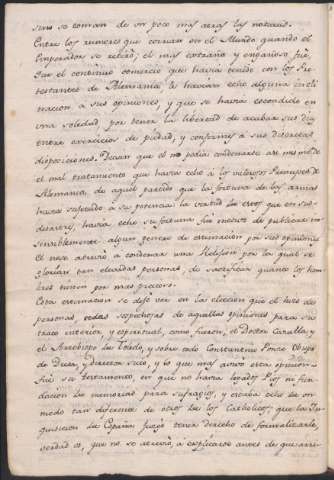 sino se toman de un poco mas atras las noticias.
Entre los rumores que corrian en el Mundo quando el
Emperador se retiró; el mas estraño y engañoso fué;
que el continuo comercio que havia tenido con los Pro-
testantes de Alemania, le havian echo alguna incli-
nacion, á sus opiniones, y que se havia escondido en
una soledad, por tener la libertad de acabar sus dias
entre exercicios de piedad, y conformes á sus discretas
disposiciones. Decian que el no podia condenarse asi mismo
el mal tratamiento que havia echo á los valerosos Principes de
Alemania, de aquel partido que la fortuna de las armas
havia sujetado á su potencia: la virtud
havia echo su fortuna
sensiblemente algun genero de estimacion por sus opiniones
El no se atrevió á condenar una Religion por la qual se
gloriaban tan elevadas personas, de sacrificar quanto los hom-
bres tienen por mas precioso.
Esta estimacion se dejó ver en las eleccion que el hizo de
personas, todas sospechosas de aquellas opiniones para su
trato interior, y espiritual, como fueron, el Doctor Cazalla y
el Arzobispo de Toledo, y sobre todo Constantino Ponce Obispo
de Drosa, y director suyo, y lo que mas
fué su testamento, en que no havia legados Pios ni fun-
dacion de memorias para sufragios, y estaba echo de un
modo tan diferente de otros de los Catholicos; que la In-
quisicion de España juzgó tener derecho de formalizarle,
verdad es, que no se atrevió, á esplicarse antes de que